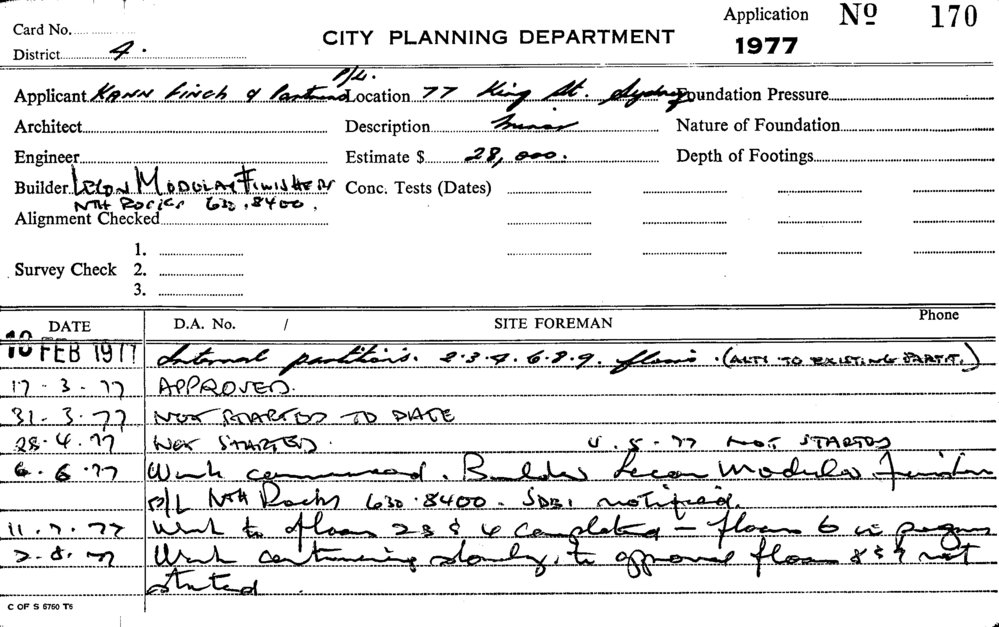 Card No.
Application No 170
District 4.
CITY PLANNING DEPARTMENT
1977
P/L.
Applicant KANN FINCH & Partners Location 77 King St. Sydney Foundation Pressure
Architect Description Minor Nature of Foundation
Engineer Estimate $ 28,000. Depth of Footings
Builder LECON MODULAR FINISHERS Conc. Tests (Dates)
NTH ROCKS 630.8400.
Alignment Checked
1.
Survey Check 2.
3.
DATE D.A. No. / SITE FOREMAN Phone
18 FEB 1977 Internal partitions. 2.3.4.6.8.9. floors. (ALTS TO EXISTING PARTIT.)
17.3.77 APPROVED.
31.3.77 NOT STARTED TO DATE
28.4.77 NOT STARTED. 4.5.77 NOT STARTED
6.6.77 Work commenced. Builder Lecon Modular
P/L Nth Rocks 630.8400. notified.
11.7.77 Work to floors 2 3 & 4 completed - floor 6 in
2.8.77 Work continuing slowly, to approval floors 8 & 9 not
started.
C OF S 5760 T6